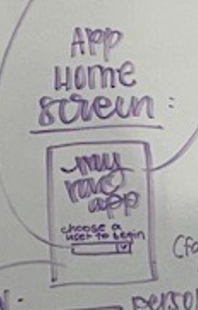 App
Home
screen:
my
rave
app
choose a
user to begin
(fa
person